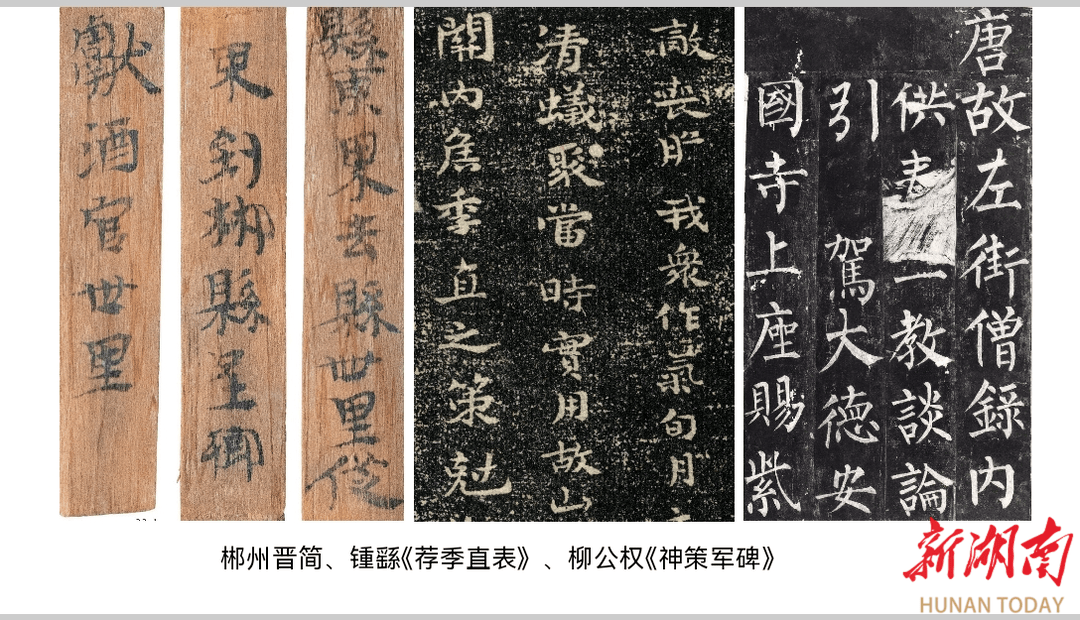 縣東界去縣卌里從
東到郴縣
獻酒官卌里
敵喪膽我衆作氣旬月
清蟻聚當時實用故山
關內侯季直之策尅
唐故左街僧錄内
供奉三教談論
引駕大德安
國寺上座賜紫
郴州晋简、锺繇《荐季直表》、柳公权《神策军碑》
新湖南
HUNAN TODAY